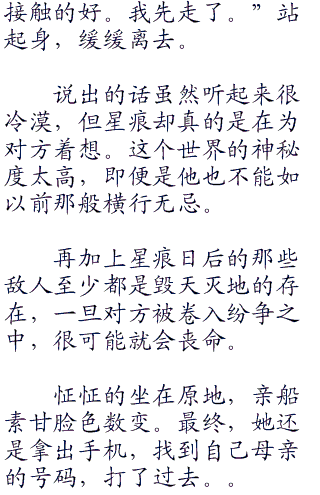 接触的好。我先走了。”站
起身，缓缓离去。
说出的话虽然听起来很
冷漠，但星痕却真的是在为
对方着想。这个世界的神秘
度太高，即便是他也不能如
以前那般横行无忌。
再加上星痕日后的那些
敌人至少都是毁天灭地的存
在，一旦对方被卷入纷争之
中，很可能就会丧命。
怔怔的坐在原地，亲船
素甘脸色数变。最终，她还
是拿出手机，找到自己母亲
的号码，打了过去。。